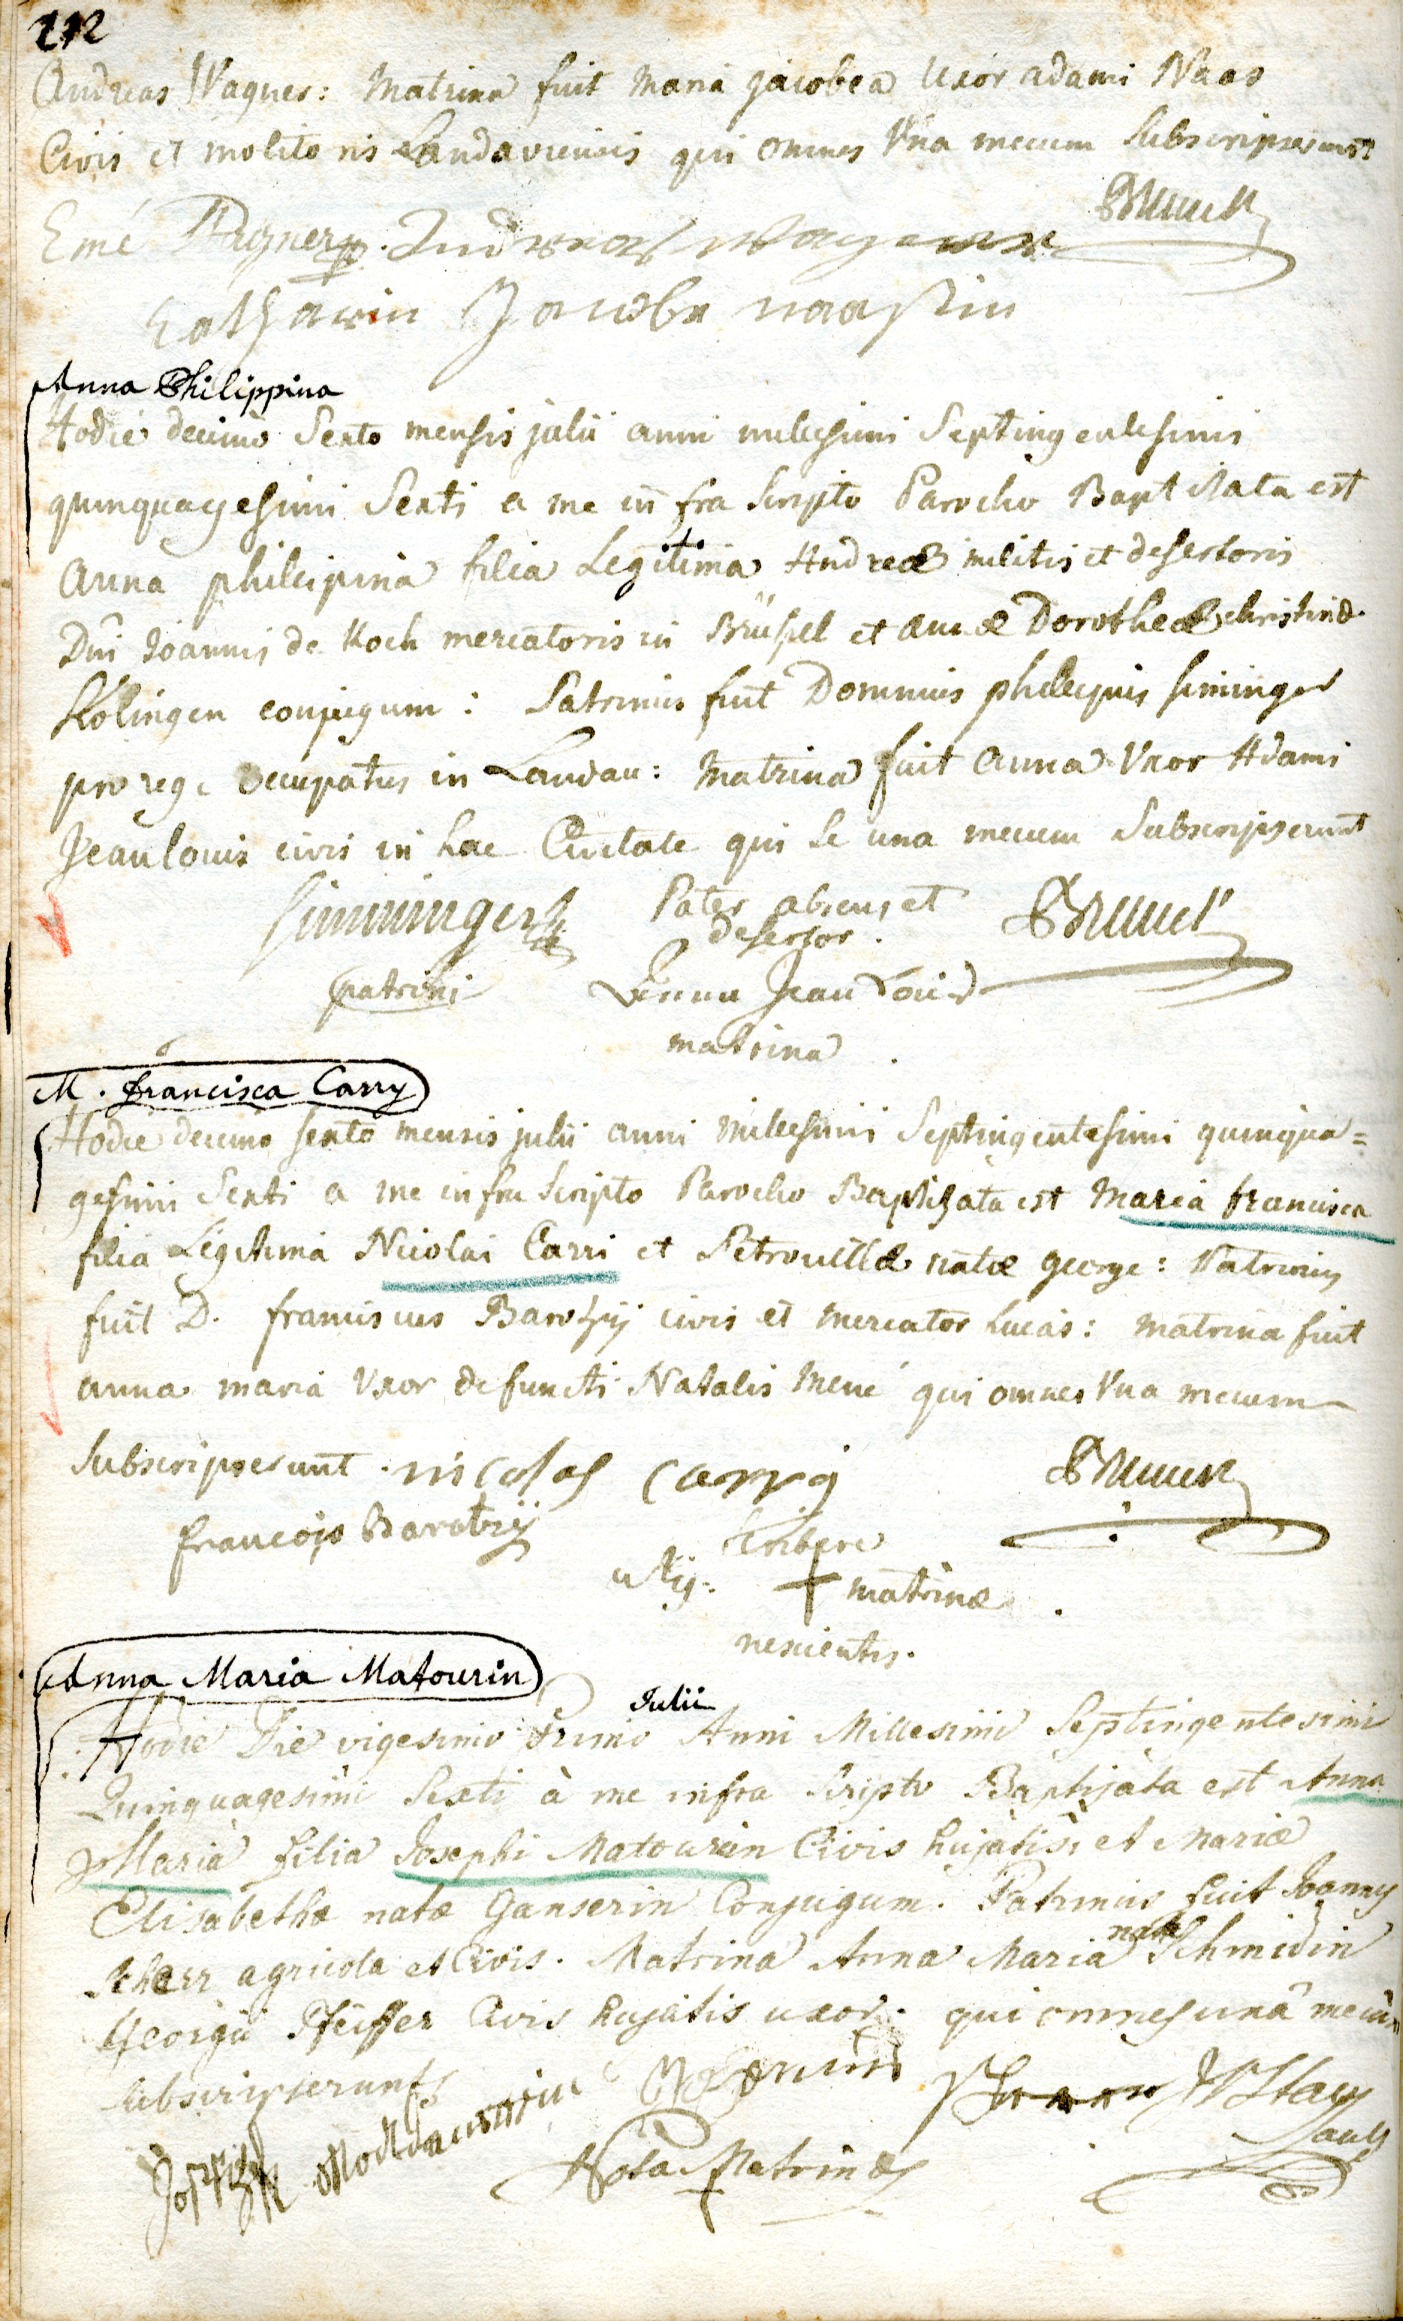 212
Andreas Wagner: Matrina fuit Maria Jacobea Uxor adami Naas
Civis et molitoris Landaviensis qui omnes Una mecum Subscripserunt
Emé Wagner Andreas Wagner Brunck
Catharin Jacobe naasin
Anna Philippina
Hodie decimo Sexto mensis julii anni millesimi Septingentesimi
quinquagesimi Sexti a me infra Scripto Parocho Baptisata est
Anna philippina filia Legitima Andreæ militis et desertoris
Dni Joannis de Koch mercatoris in Brüssel et Annæ Dorotheæ christinæ
Kolingen conjugum: Patrinus fuit Dominus philippus siminger
pro rege occupatus in Landau: Matrina fuit Anna Uxor Adami
Jeanlouis civis in hac Civitate qui se una mecum Subscripserunt
simminger Pater absens et Brunck
desertor.
patrini Jean Louis
matrina
M. Francisca Carry
Hodie decimo sexto mensis julii anni millesimi Septingentesimi quinqua=
gesimi Sexti a me infra Scripto Parocho Baptizata est Maria francisca
filia Legitima Nicolai Carri et Petronillæ natæ george: Patrinus
fuit D. franciscus Barotzÿ civis et mercator Lucas: matrina fuit
anna maria Uxor defuncti Natalis Mené qui omnes Una mecum
Subscripserunt. nicolas carry Brunck
françois Barotzÿ scribere
+ matrinæ.
nescientis.
Anna Maria Matourin
Julii
Hodie Die vigesimo Primo Anni Millesimi Septingentesimi
Quinquagesimi Sexti à me infra Scripto Baptizata est Anna
Maria filia Josephi Matourin Civis hujatis, et Mariæ
Elisabethæ natæ Ganserin Conjugum. Patrinus fuit Joannes
Scherr agricola et Civis. Matrina Anna Maria nata Schmidin
Georgii Pfeiffer Civis hujatis uxor. qui omnes unâ mecum
subscripserunt
Nota Matrinæ